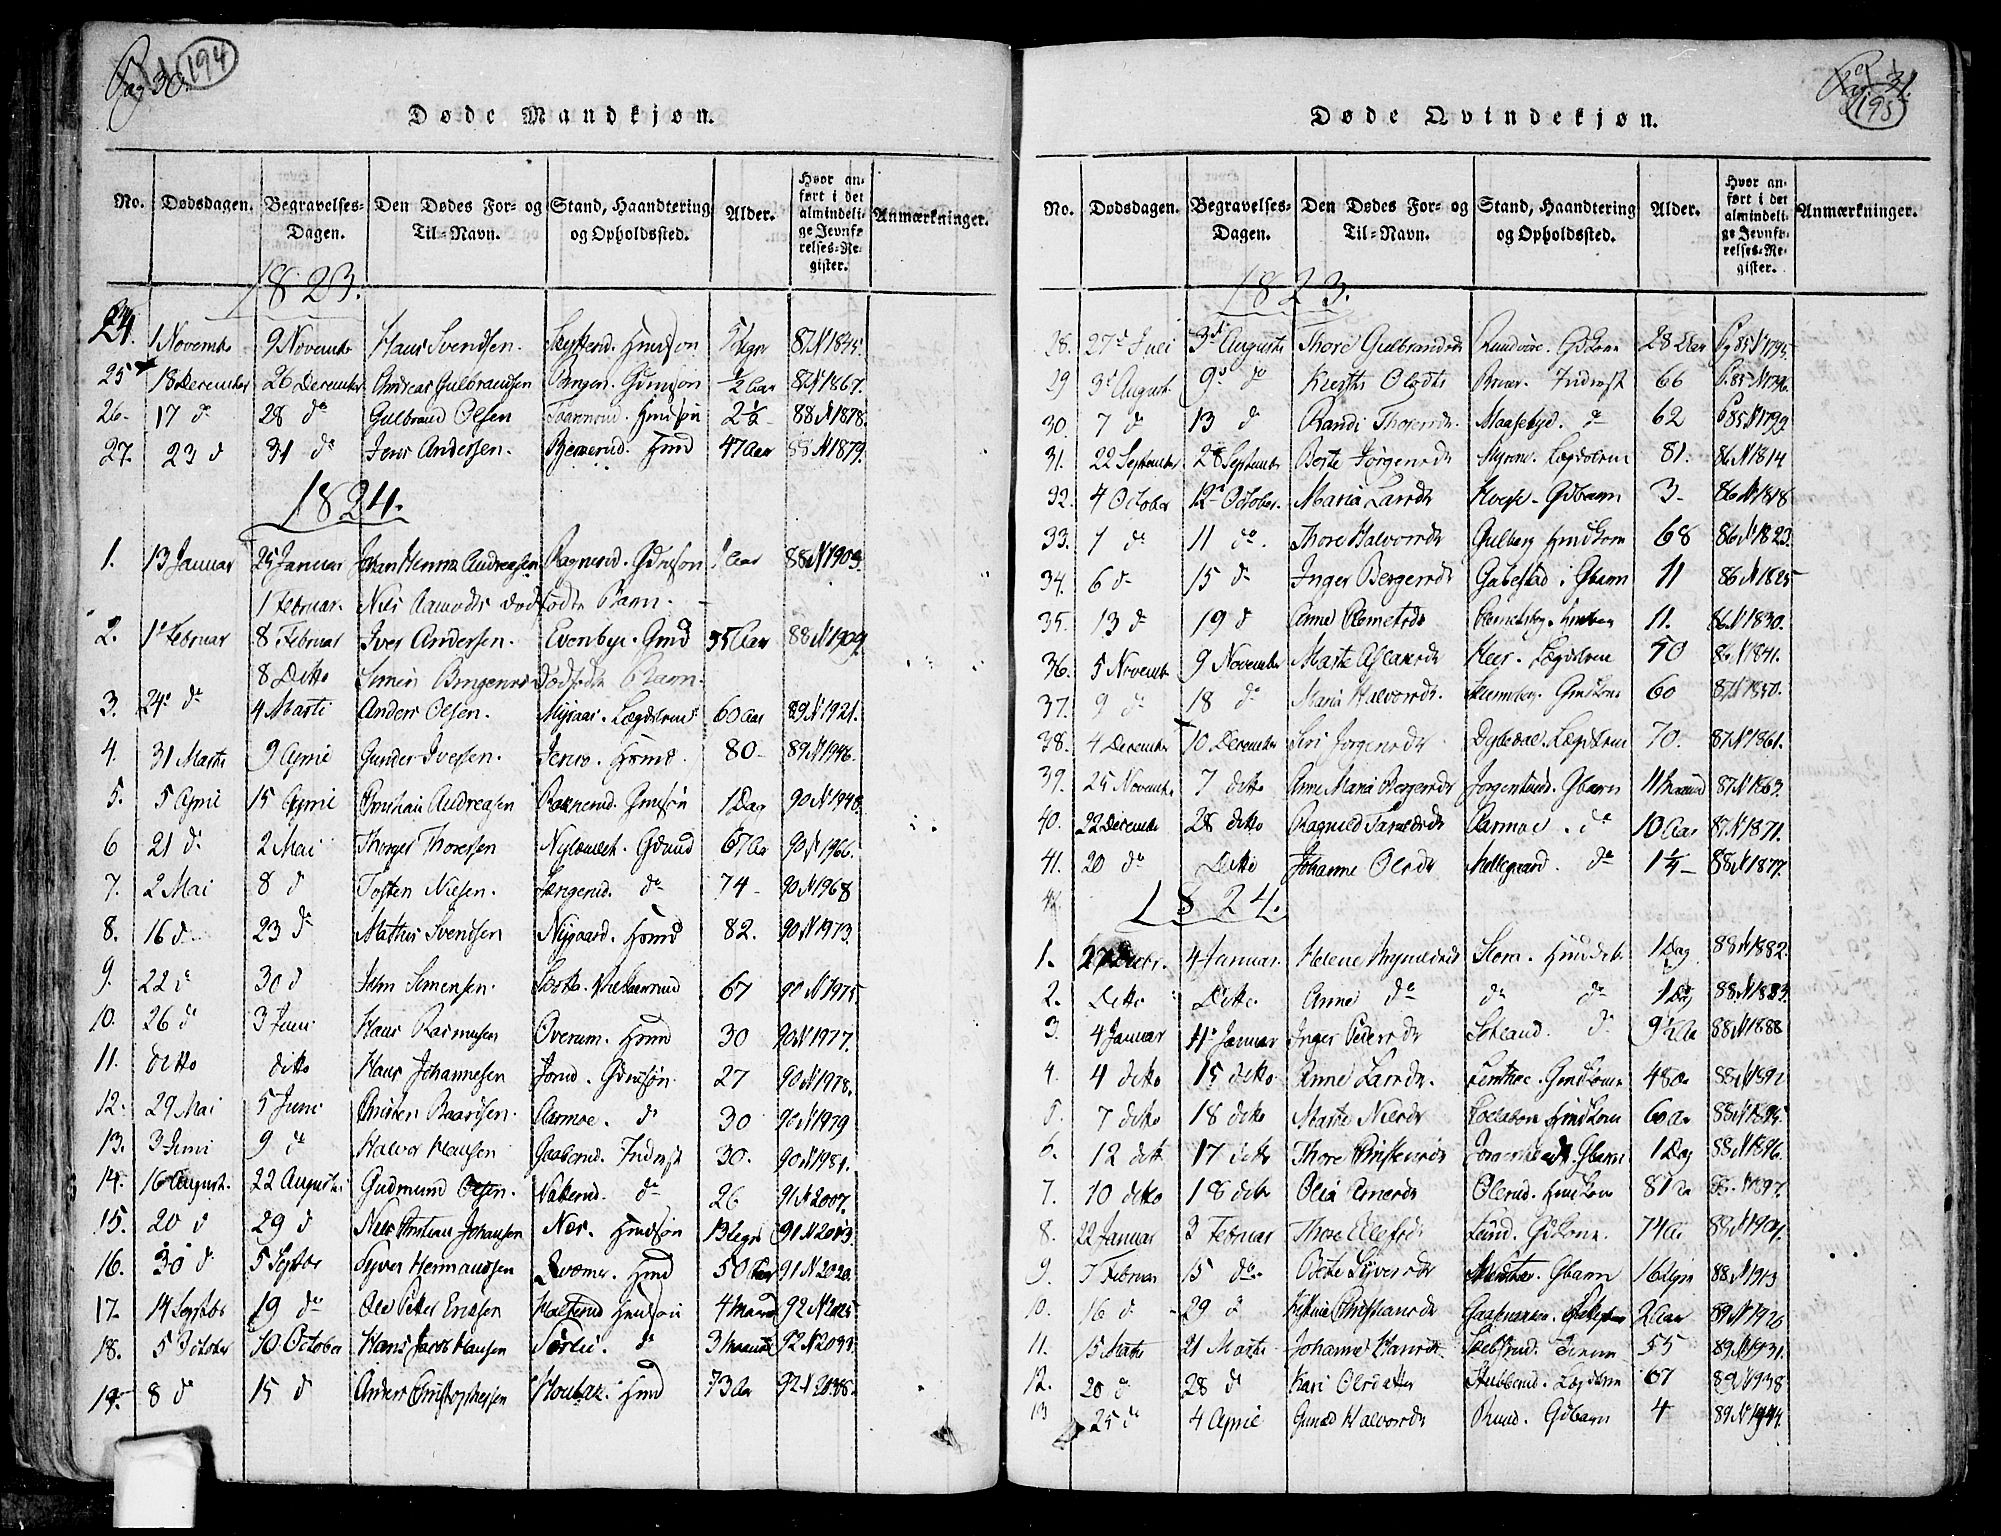 Pag 30. 194
Døde Mandkjøn.
No. Dødsdagen. Begravelses-Dagen. Den Dødes For- og Til-Navn. Stand, Haandtering og Opholdssted. Alder. Hvor anført i det almindelige Jevnførelses-Register. Anmærkninger.
1823.
24. 1 Novembr 9 Novembr Hans Svendsen. Huusmd 87 N 1845.
25 18 December 26 December Andreas Gulbrandsen Gdmsøn ½ Aar 87 N 1867.
26. 17 do 28 do Gulbrand Olsen Hmdsøn 2½ 88 N 1878.
27. 23 d 31 do Jens Andersen. Bjererud. Hmd 47 Aar 88 N 1879.
1824.
1. 13 Januar 25 Januar Johan Henrik Andreasen Ragnerud. Gdmsøn 1 Aar 88 N 1903.
1 Februar. Niels Aamodts dødfødte Barn.
2. 1 Februar 8 Februar Iver Andersen. Evenbye. Gmd 35 Aar 88 N 1909.
8 Ditto Simen Bingens Dødfødte Barn.
3. 24 do 4 Marti Anders Olsen. Mysaas. Lægdslem 60 Aar 89 N 1921.
4. 31 Marts 9 April Gunder Iversen. Hmd. 80 89 N 1946.
5. 5 April 15 April Andreasen Raknerud. Gmsøn 1 Dag 90 N 1948.
6 21 d 2 Mai Thorger Thoresen Gdmd 67 Aar 90 N 1966.
7. 2 Mai 8 d Tosten Nielsen. Længerud. do 74 90 N 1968
8. 16 d 23 d Mathis Svendsen Nygaard. Hmd 82. 90 N 1973.
9. 22 d 30 d John Simensen. 67 90 N 1975.
10. 26 d 3 Juni Hans Rasmusen Overum. Hmd 30 90 N 1977.
11. ditto ditto Hans Johannesen Jorud. Gdmsøn. 27 90 N 1978.
12. 29 Mai 5 Juni Christen Baardsen. Aarmoe. d 30 90 N 1979
13. 3 Juni 9 d Halvor Hansen Gaaserud. Inderst 30. 90 N 1981.
14. 16 August. 22 Augusti Gudmund Olsen. Nakerud. do 26 91 N 2007.
15. 20 d 29 d Niels Christian Johansen Nær. Hmdsøn 13 Dage 91 N 2013.
16. 30 d 5 Septbr Syver Hermansen Qvæmer. Hmd 50 Aar 91 N 2020.
17. 14 Septbr 19 do Ole Peter Ericsen Holterud Hmdsøn 4 Maand 92 N 2025
18. 5 October 10 October Hans Jacob Hansen Sørlie. do 3 Maand 92 N 2033.
19. 8 d 15 d Anders Christophersen Houbak. Hmd 73 Aar 92 N 2038.
Pag. 31. 195
Døde Qvindekjøn.
No. Dødsdagen. Begravelses-Dagen. Den Dødes For- og Til-Navn. Stand, Haandtering og Opholdssted. Alder. Hvor anført i det almindelige Jevnførelses-Register. Anmærkninger.
1823.
28. 27 Juli 3 Augusti Thore Gulbrandsdr Gdkone 28 Aar Pg 85 N 1795.
29 3 August 9 do Kirstie Olsdtr Inderst 66 P 85 N 1796.
30. 7 d 13 d Randi Thoresdr. Maasebyd. do 62 P 85 N 1799
31. 22 September 28 September Berte Jørgensdr Myrom. Lægdslem 81. 86 N 1814
32. 4 October 12 October. Maria Larsdr Gdbarn 3 86 N 1818
33. 7 do 11 do. Thore Halvorsdr Gulberg Hmdkone 68 86 N 1823.
34. 6 d 15 d Inger Bergersdr Gabestad. Gbarn 11 86 N 1825
35. 13 d 19 d Anne Clemetsdr 11. 86 N 1830.
36. 5 Novembr 9 November Marte Aslaksdr Heer. Lægdslem 50 86 N 1841.
37. 9 d 18 do Maria Halvorsdr. Gmdkone 60 87 N 1850.
38. 4 December 10 December Siri Jørgensdr Dybedal. Lægdslem 70. 87 N 1861.
39. 25 Novembr 7 ditto Anne Maria Bergersdr Jørgentved. Gbarn 11 Maaned 87 N 1863.
40. 22 December 28 ditto Ragnild Taraldsdr Aarmoe. do 10 Aar 87 N 1871.
41. 20 do Ditto Johanne Olsdr Mellegaard. do 1¼ 88 N 1877.
1824.
1. 27 Decbr. 4 Januar. Helene Brynildsdr 1 Dag 88 N 1882.
2. Ditto Ditto. Anne do do do 1 Dg 88 N 1883.
3. 4 Januar 11 Januar Inger Pedersdr d 88 N 1888
4. 4 ditto 15 ditto Anne Larsdr. Gmdkone 48 88 N 1892
5. 7 ditto 18 ditto Marte Nielsdr Hmdkone 60 Aar 88 N 1895.
6. 12 ditt 17 ditto Thore Christensdr Gbarn 1 Dag 88 N 1896.
7. 10 ditto 18 ditto Olia Arnesdr Olerud. Hmdkone 81 Aar 88 N 1897.
8. 22 Januar 3 Februar Thore Ellefsdr Lund. Gdkone. 74 Aar 88 N 1901.
9. 7 Februar 15 do Oleke Syversdr Gbarn 16 Uger 88 N 1913
10. 16 d 29 d Kistine Christiansdr 2 Aar 89 N 1920
11. 15 Marts 21 Marti Johanne Hansdr 55 89 N 1931.
12. 20 d 28 d Kari Olsdatter Stubberud. Lægdslem 67 89 N 1938.
13 25 d 4 April Gunild Halvorsdr Ruud. Gdbarn 4 89 N 1944.